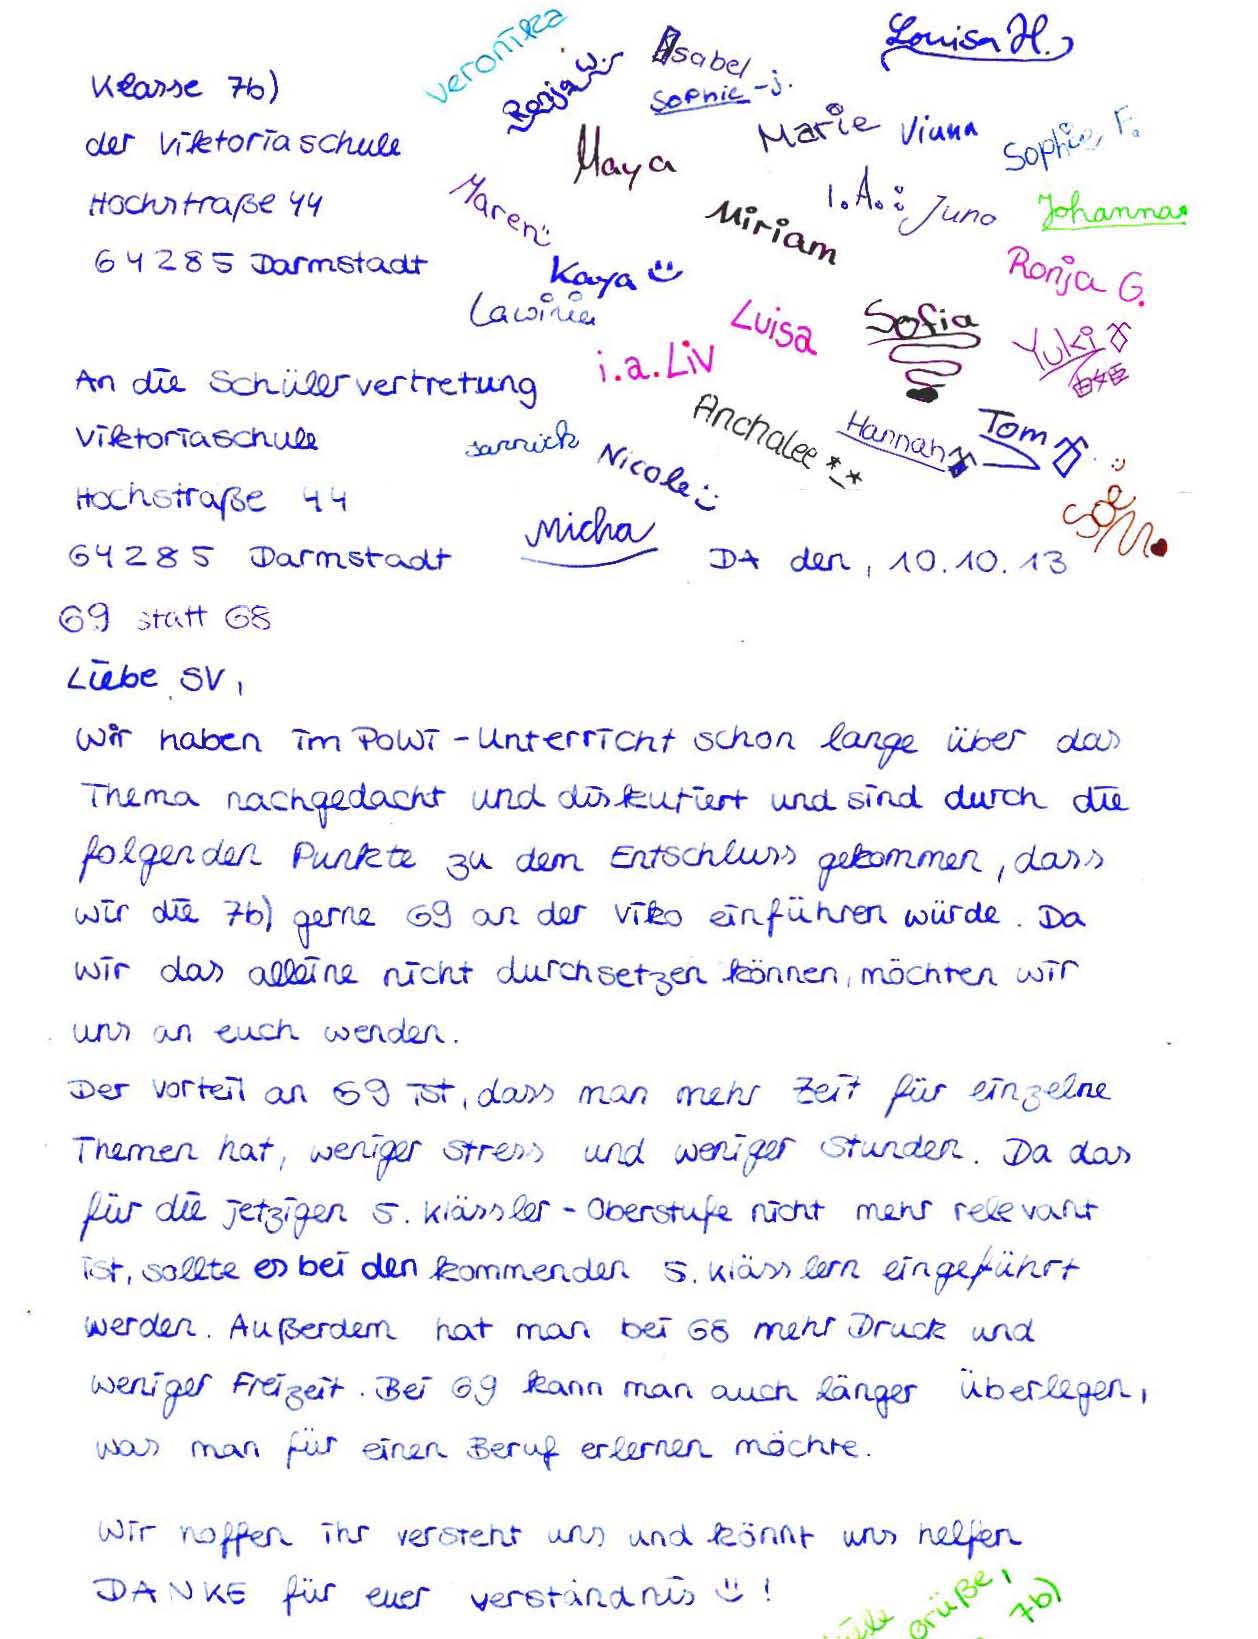 Klasse 7b)
der Viktoriaschule
Hochstraße 44
64285 Darmstadt
Veronika
Ronja W.
Isabel
Sophie-J.
Louisa H.
Maya
Marie
Viuna
Sophie, F.
Maren
Miriam
I.A.: Juno
Johanna
Kaya
Lawinia
Ronja G.
Luisa
Sofia
Yuki
i.a. Liv
Anchalee *_*
Hannah
Tom
Jannick
Nicole :)
Micha
An die Schülervertretung
Viktoriaschule
Hochstraße 44
64285 Darmstadt
DA den, 10.10.13
G9 statt G8
Liebe SV,
Wir haben im PoWi-Unterricht schon lange über das
Thema nachgedacht und diskutiert und sind durch die
folgenden Punkte zu dem Entschluss gekommen, dass
wir die 7b) gerne G9 an der Viko einführen würde. Da
wir das alleine nicht durchsetzen können, möchten wir
uns an euch wenden.
Der Vorteil an G9 ist, dass man mehr Zeit für einzelne
Themen hat, weniger Stress und weniger Stunden. Da das
für die jetzigen 5. Klässler-Oberstufe nicht mehr relevant
ist, sollte es bei den kommenden 5. Klässlern eingeführt
werden. Außerdem hat man bei G8 mehr Druck und
weniger Freizeit. Bei G9 kann man auch länger überlegen,
was man für einen Beruf erlernen möchte.
Wir hoffen ihr versteht uns und könnt uns helfen
DANKE für euer Verständnis :) !
Viele Grüße,
7b)